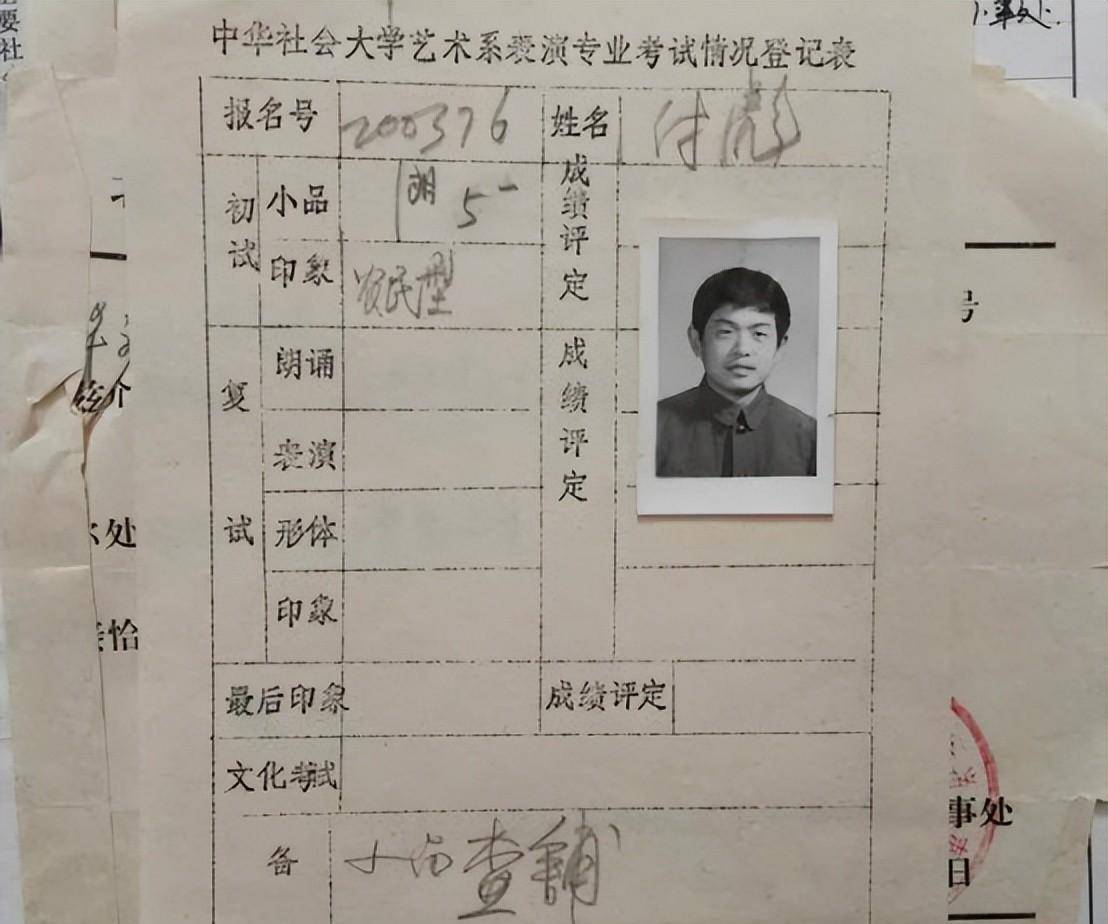 中华社会大学艺术系表演专业考试情况登记表
报名号 200376 姓名 付彪
初试 小品 朗 5- 成绩评定
印象 农民型
复试 朗诵 成绩评定
表演
形体
印象
最后印象 成绩评定
文化考试
备
要
社
介
处
恰
号
事处
日